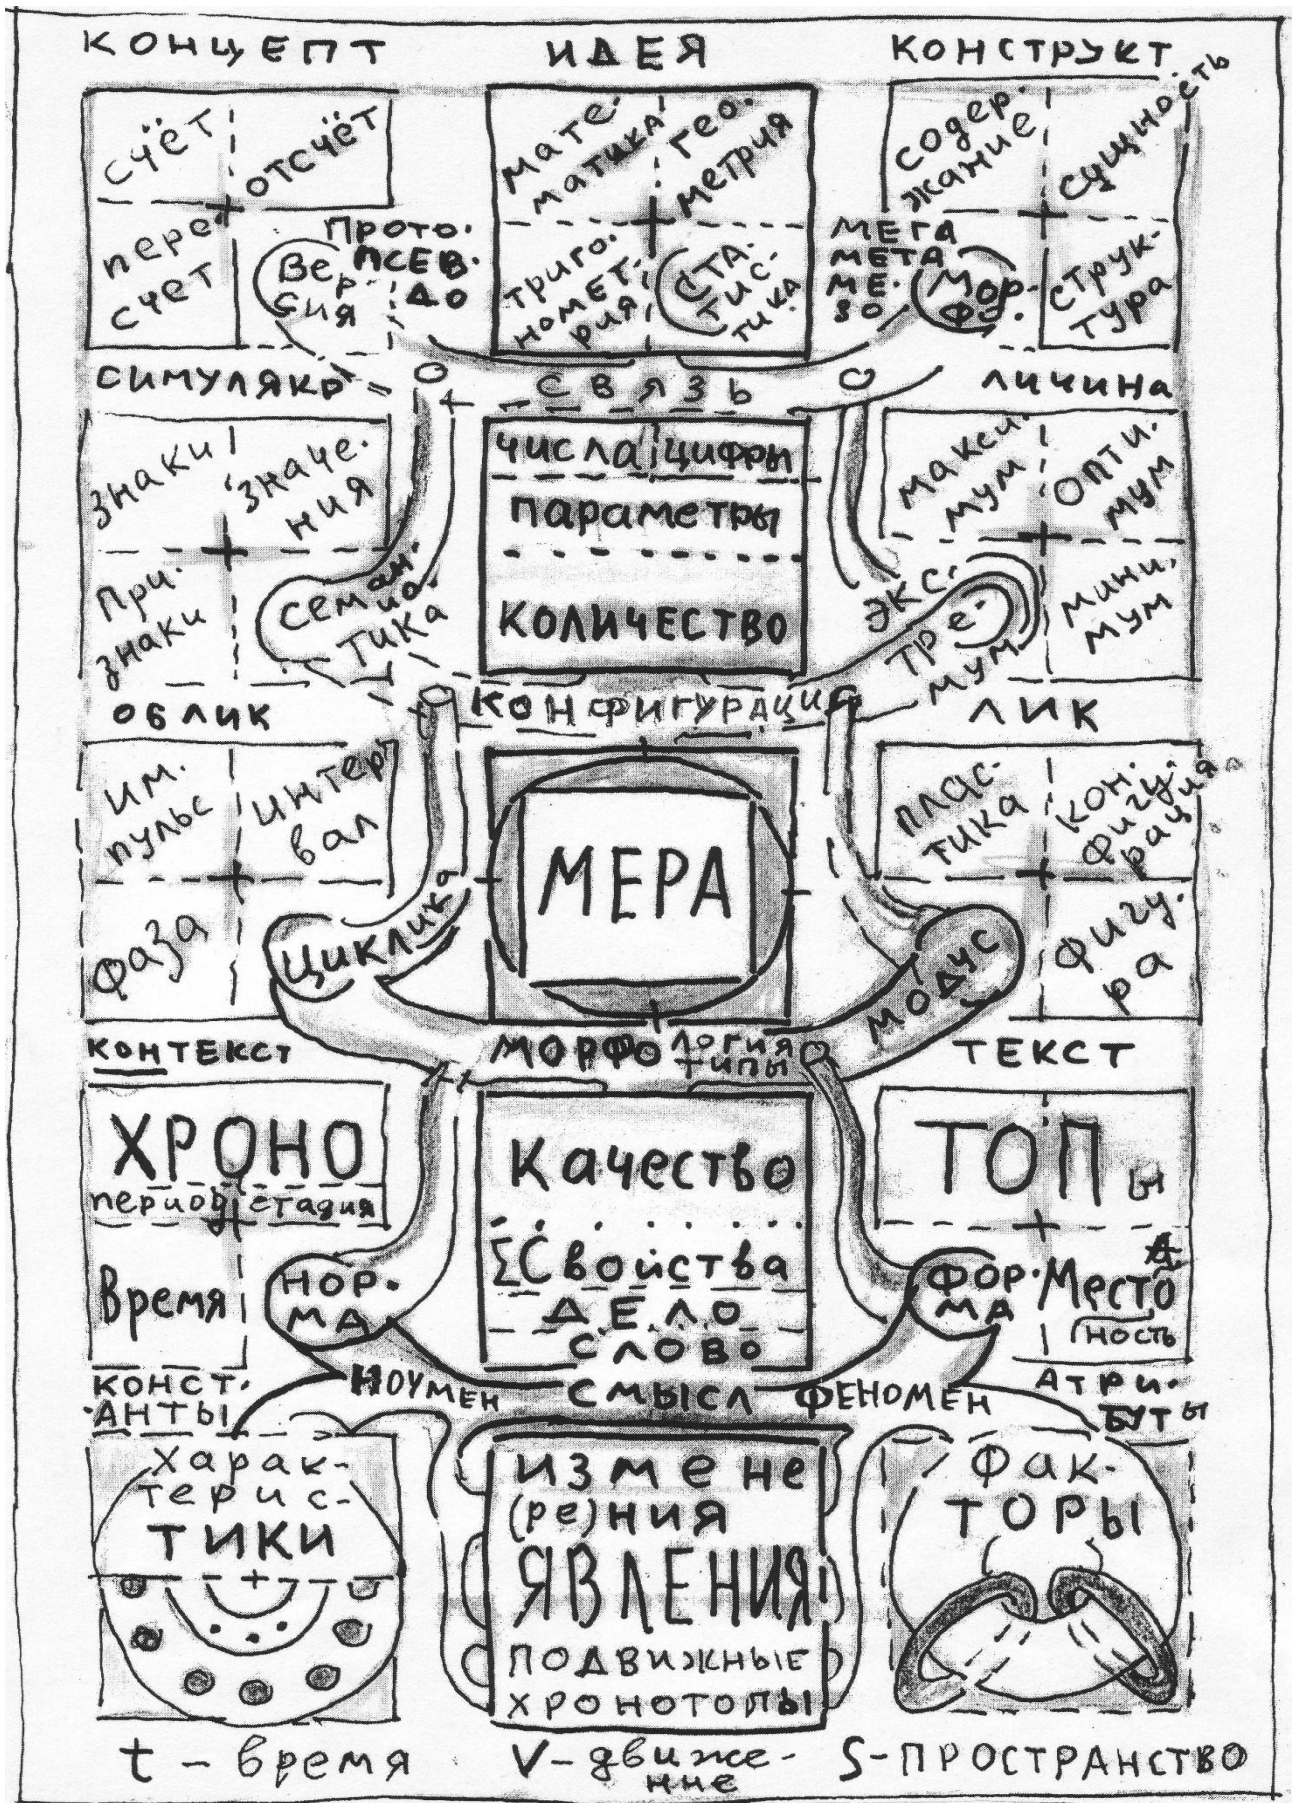 КОНЦЕПТ
ИДЕЯ
КОНСТРУКТ
счёт
отсчёт
пере-
счет
Вер-
сия
Прото-
ПСЕВ-
ДО
мате-
матика
гео-
метрия
триго-
номет-
рия
СТА-
ТИС-
ТИКА
МЕГА
МЕТА
МЕ-
ЗО
МОР-
ФО-
содер-
жание
сущность
струк-
тура
СИМУЛЯКР
СВЯЗЬ
ЛИЧИНА
знаки
значе-
ния
при-
знаки
семан-
ио-
тика
числа цифры
параметры
КОЛИЧЕСТВО
макси-
мум
опти-
мум
мини-
мум
ЭКС-
ТРЕ-
МУМ
ОБЛИК
КОНФИГУРАЦИЯ
ЛИК
им-
пульс
интер
вал
фаза
ЦИКЛИКА
МЕРА
плас-
тика
кон-
фигу-
рация
фигу-
ра
МОДУС
КОНТЕКСТ
МОРФО
ЛОГИЯ
ТИПЫ
ТЕКСТ
ХРОНО
период стадия
Время
НОР-
МА
Качество
ΣСвойства
ДЕЛО
СЛОВО
ТОП ы
ФОР-
МА
Место
ность
КОНСТ-
АНТЫ
НОУМЕН
СМЫСЛ
ФЕНОМЕН
АТРИ-
БУТЫ
Харак-
терис-
ТИКИ
изме не
(ре)ния
ЯВЛЕНИЯ
ПОДВИЖНЫЕ
ХРОНОТОПЫ
ФАК-
ТОРЫ
t - время
V - движе-
ние
S - ПРОСТРАНСТВО